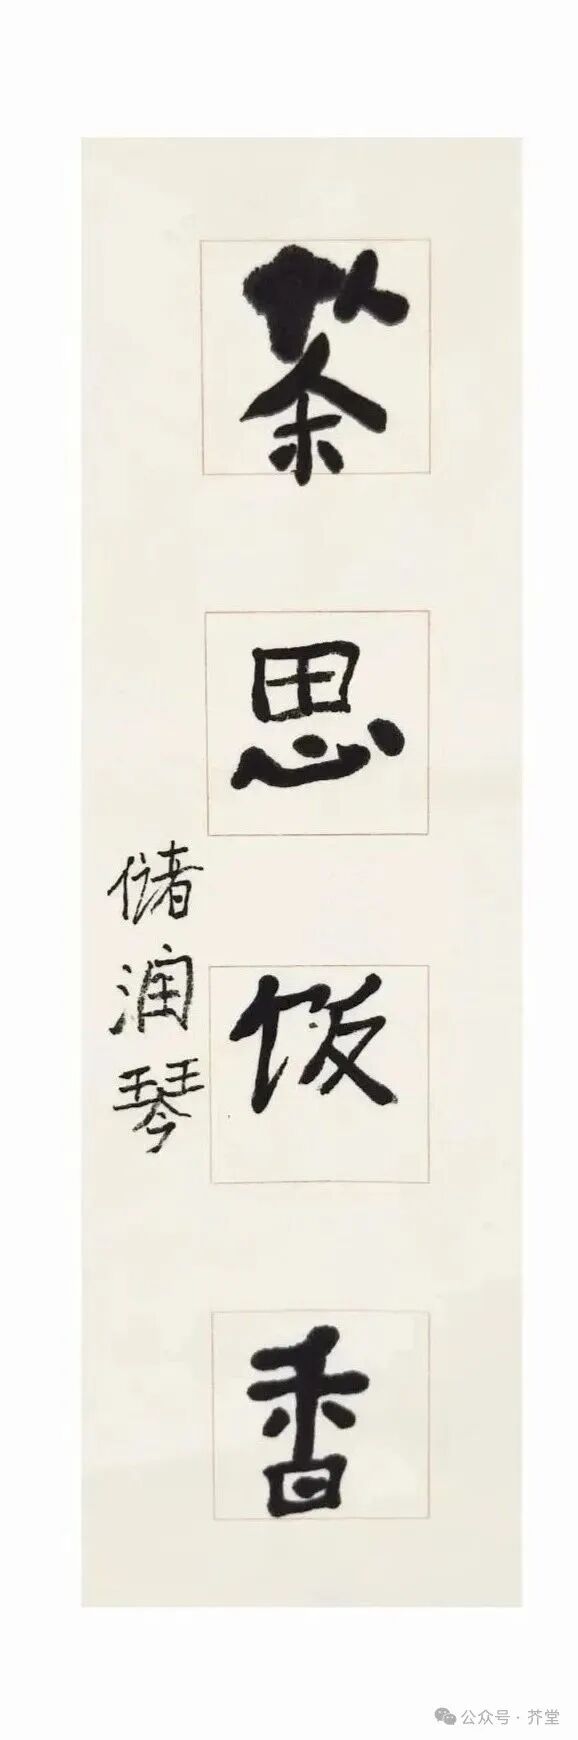 茶思饭香
储润琴
公众号·芥堂